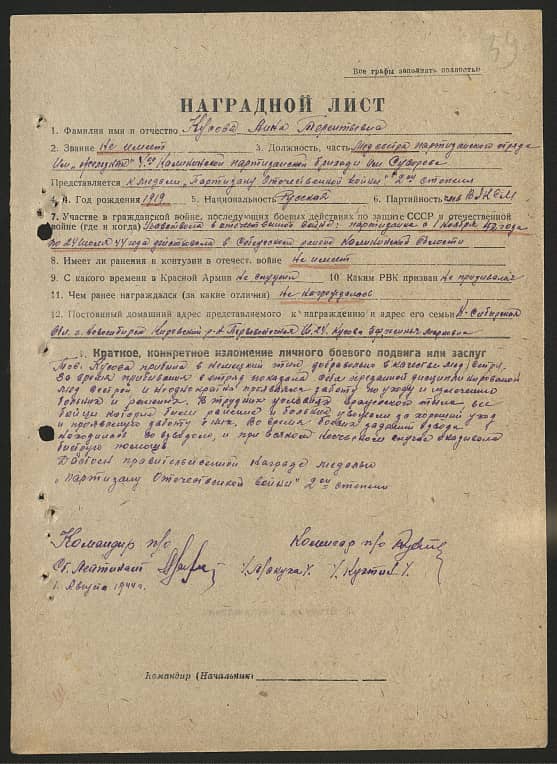 39
Все графы заполнять полностью
НАГРАДНОЙ ЛИСТ
1. Фамилия имя и отчество Курова Анна Терентьевна
2. Звание Не имеет 3. Должность, часть Медсестра партизанского отряда
Им. 4-ой Калининской партизанской бригады Им. Суворова
Представляется к медали „Партизану Отечественной войны" 2ой степени
4. Год рождения 1919 5. Национальность Русская 6. Партийность член ВЛКСМ
7. Участие в гражданской войне, последующих боевых действиях по защите СССР и отечественной
войне (где и когда) в отечественной войне: партизанка с 1 Ноября года
По 24 Июля 44 года действовала в районе Калининской области
8. Имеет ли ранения и контузии в отечест. войне Не имеет
9. С какого времени в Красной Армии Не служит 10 Каким РВК призван Не призывалась
11. Чем ранее награждался (за какие отличия) Не награждалась
12. Постоянный домашний адрес представляемого к награждению и адрес его семьи Н-Сибирская
Обл. г. Новосибирск Кировский р-н
1. Краткое, конкретное изложение личного боевого подвига или заслуг
Тов. прибыла в немецкий тыл добровольно в качестве медсестры.
Во время пребывания в отряде показала себя дисциплинированной
мед. сестрой и неоднократно проявляла заботу по уходу и излечению
больных и раненых. В трудных условиях вражеского тыла все
бойцы которые были ранены и больные уважали за хороший уход
и проявленную заботу о них. Во время боевых заданий взвода
находилась со взводом, и при всяком несчастном случае оказывала
быструю помощь.
Достоен правительственной награды медалью
„Партизану Отечественной войны" 2ой степени
Командир п/о Комиссар п/о
Ст. Лейтенант
1. Августа 1944 г.
Командир (Начальник)